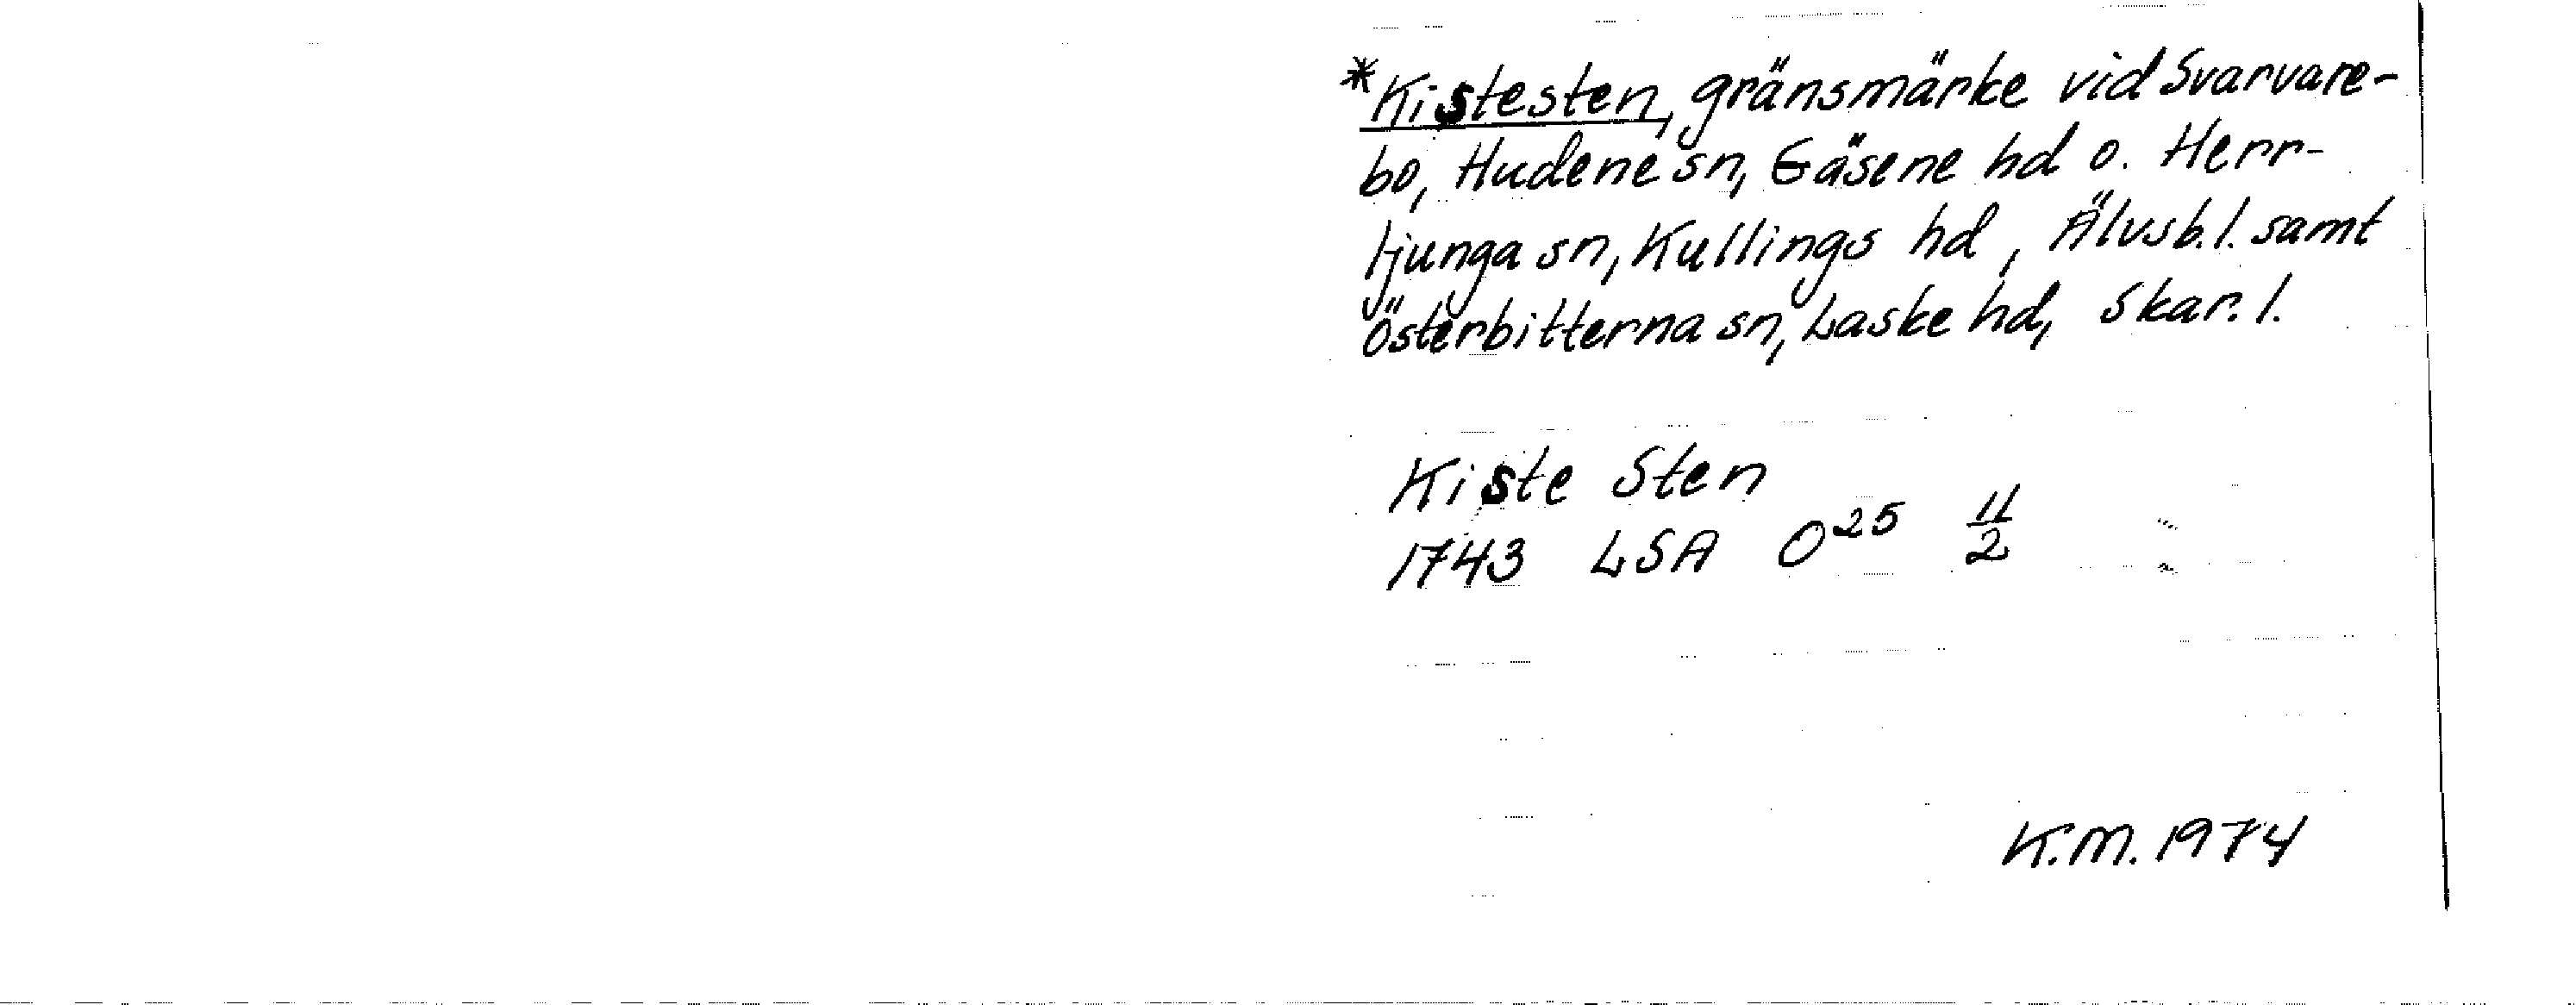 *Kistesten, gränsmärke vid Svarvare-
bo, Hudene sn, Gäsene hd o. Herr-
ljunga sn, Kullings hd, Älvsb. l. samt
Österbitterna sn, Laske hd, Skar. l.
Kiste Sten
1743 LSA O²⁵ 11/2
K.M. 1974